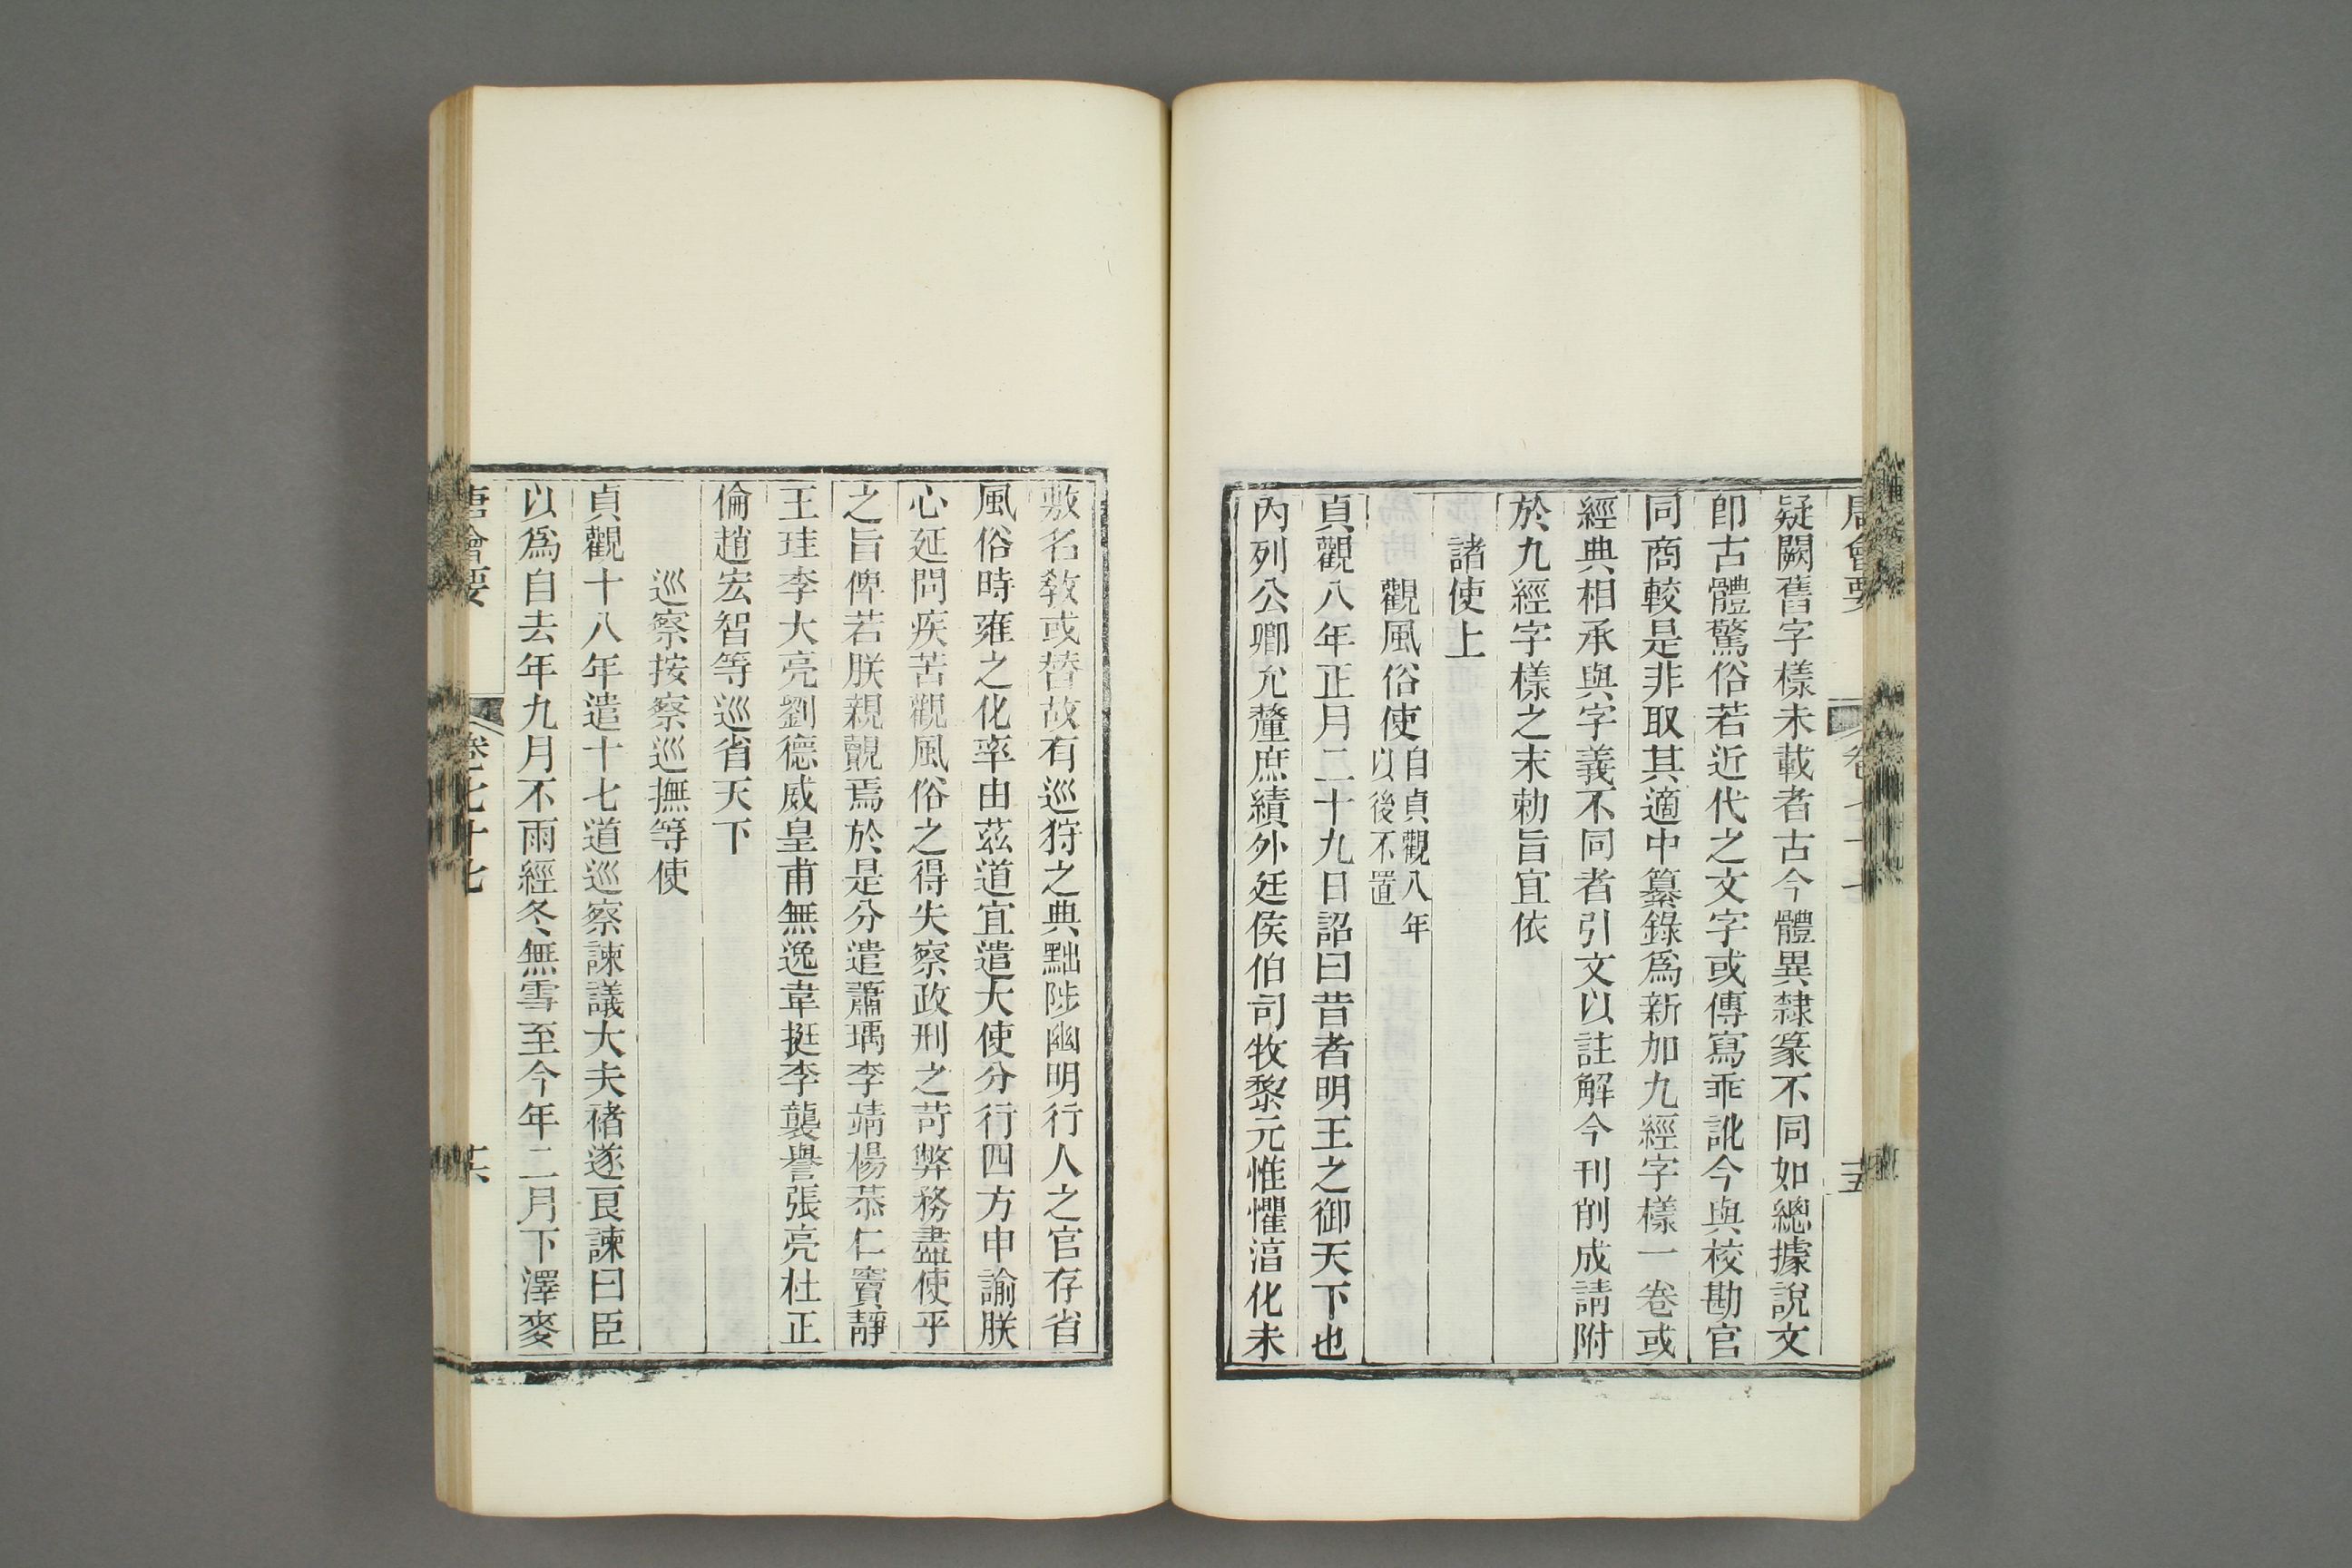 唐會要 卷七十七 十五
疑闕舊字樣未載者古今體異隸篆不同如總據說文
卽古體驚俗若近代之文字或傳寫乖訛今與校勘官
同商較是非取其適中纂錄爲新加九經字樣一卷或
經典相承與字義不同者引文以註解今刊削成請附
於九經字樣之末勅旨宜依
諸使上
觀風俗使自貞觀八年
以後不置
貞觀八年正月二十九日詔曰昔者明王之御天下也
內列公卿允釐庶績外廷侯伯司牧黎元惟懼淳化未
敷名敎或替故有巡狩之典黜陟幽明行人之官存省
風俗時雍之化率由茲道宜遣大使分行四方申諭朕
心延問疾苦觀風俗之得失察政刑之苛弊務盡使乎
之旨俾若朕親覿焉於是分遣蕭瑀李靖楊恭仁竇靜
王珪李大亮劉德威皇甫無逸韋挺李襲譽張亮杜正
倫趙宏智等巡省天下
巡察按察巡撫等使
貞觀十八年遣十七道巡察諫議大夫褚遂良諫曰臣
以爲自去年九月不雨經冬無雪至今年二月下澤麥
唐會要 卷七十七 十六